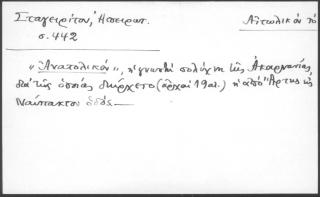 Σταγειρίτου, Ἠπειρωτ. Αἰτωλικόν τό
σ. 442
"Ἀνατολικόν", ἡ γνωστή πολίχνη τῆς Ἀκαρνανίας,
διά τῆς ὁποίας διήρχετο (ἀρχαί 19 αἰ.) ἡ ἀπό Ἄρτης εἰς
Ναύπακτον ὁδός.—